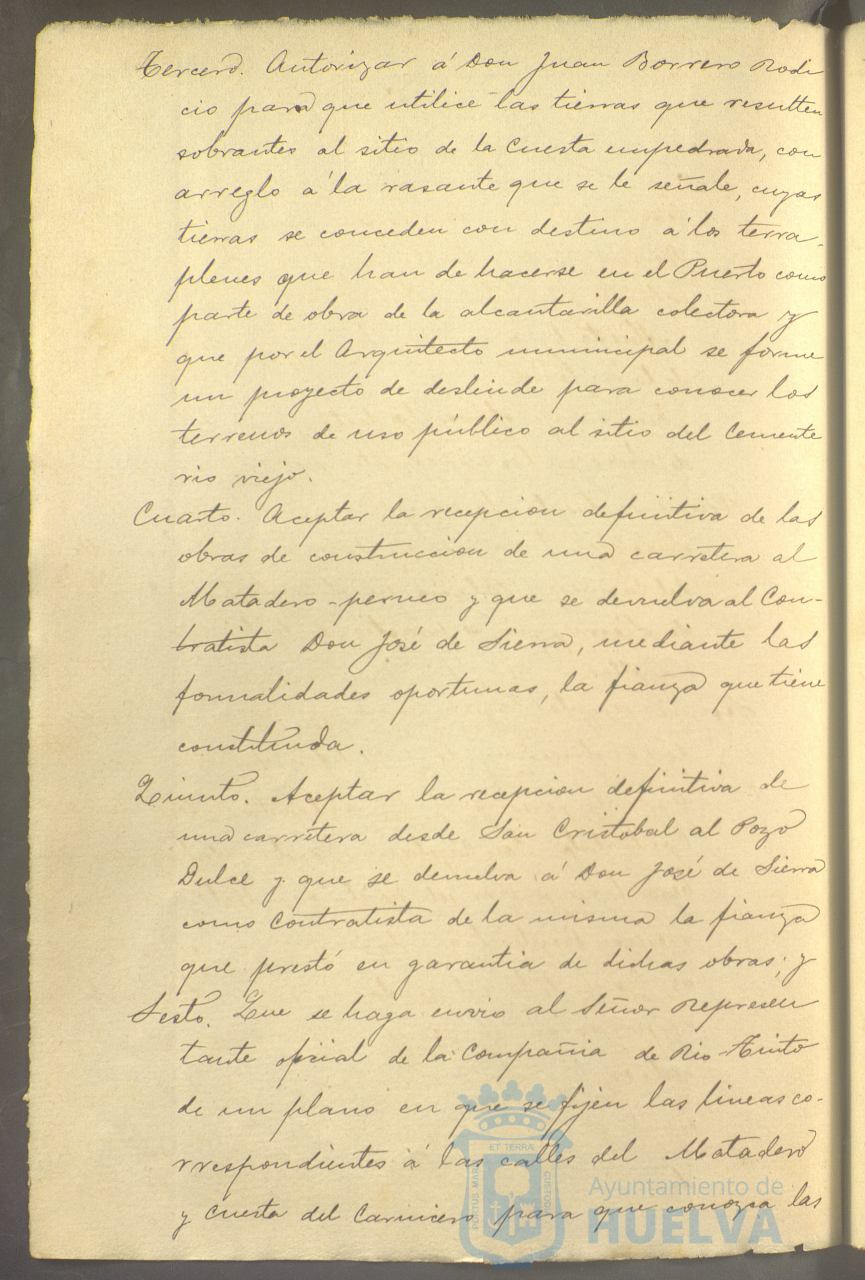 Tercero. Autorizar á Don Juan Borrero Rodi
cio para que utilice las tierras que resulten
sobrantes al sitio de la Cuesta empedrada, con
arreglo á la rasante que se le señale, cuyas
tierras se conceden con destino á los terra-
plenes que han de hacerse en el Puerto como
parte de obra de la alcantarilla colectora y
que por el Arquitecto municipal se forme
un proyecto de deslinde para conocer los
terrenos de uso público al sitio del Cemente
rio viejo.
Cuarto. Aceptar la recepcion definitiva de las
obras de construccion de una carretera al
Matadero-perneo y que se devuelva al Con-
tratista Don José de Sierra, mediante las
formalidades oportunas, la fianza que tiene
constituida.
Quinto. Aceptar la recepcion definitiva de
una carretera desde San Cristobal al Pozo
Dulce y que se devuelva á Don José de Sierra
como Contratista de la misma la fianza
que prestó en garantia de dichas obras; y
Sesto. Que se haga envio al Señor Represen
tante oficial de la Compañia de Rio-Tinto
de un plano en que se fijen las lineas co-
rrespondientes á las calles del Matadero
y Cuesta del Carnicero para que conozca las
ET TERRA
PORTUS MARIS
CUSTODIA
Ayuntamiento de
HUELVA